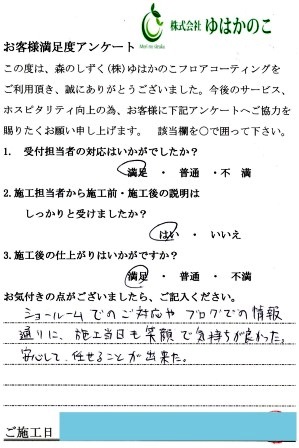 株式会社 ゆはかのこ
お客様満足度アンケート
この度は、森のしずく(株)ゆはかのこフロアコーティングを
ご利用頂き、誠にありがとうございました。今後のサービス、
ホスピタリティ向上の為、お客様に下記アンケートへご協力を
賜りたくお願い申し上げます。 該当欄を○で囲って下さい。
1. 受付担当者の対応はいかがでしたか?
満足 ・ 普通 ・ 不満
2.施工担当者から施工前・施工後の説明は
しっかりと受けましたか?
はい ・ いいえ
3.施工後の仕上がりはいかがですか?
満足 ・ 普通 ・ 不満
お気付きの点がございましたら、ご記入ください。
ショールームでのご対応や ブログでの情報
通りに、施工当日も笑顔で気持ちが良かった。
安心して 任せることが出来た。
ご施工日